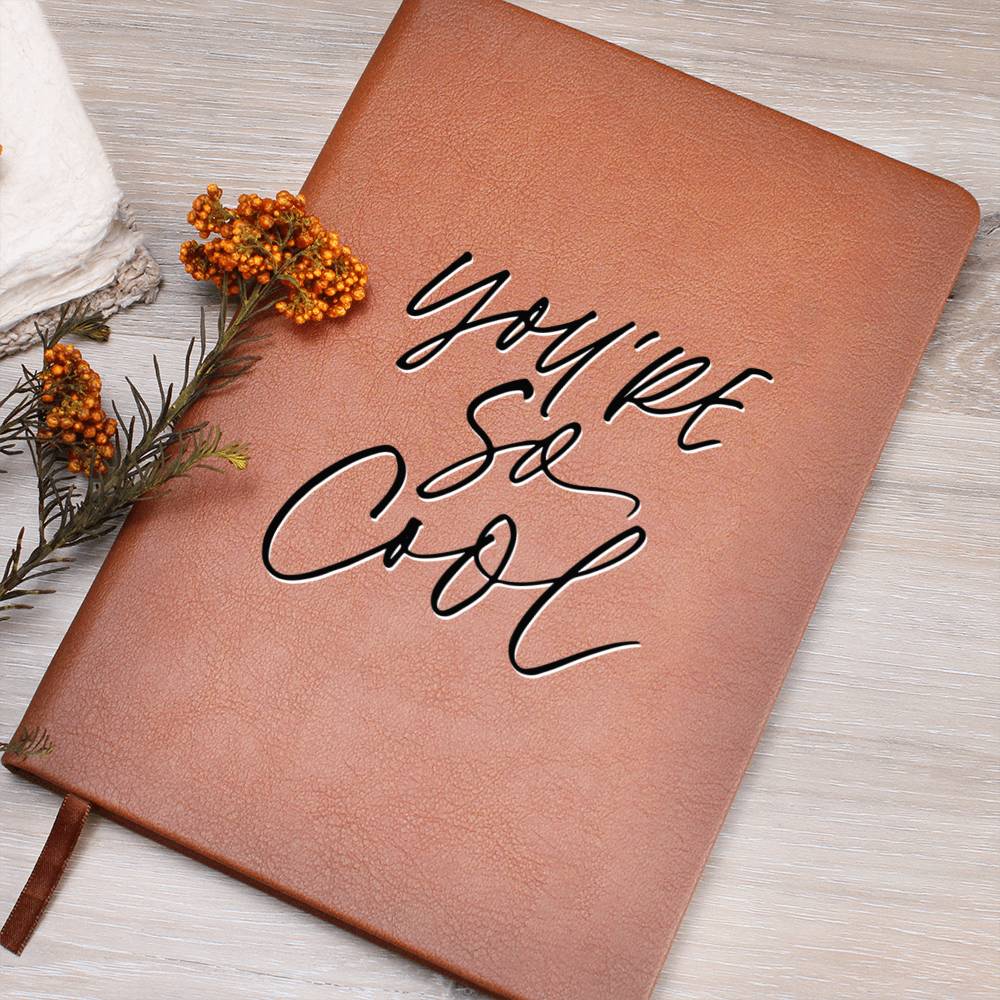 YOU'RE
So
Cool